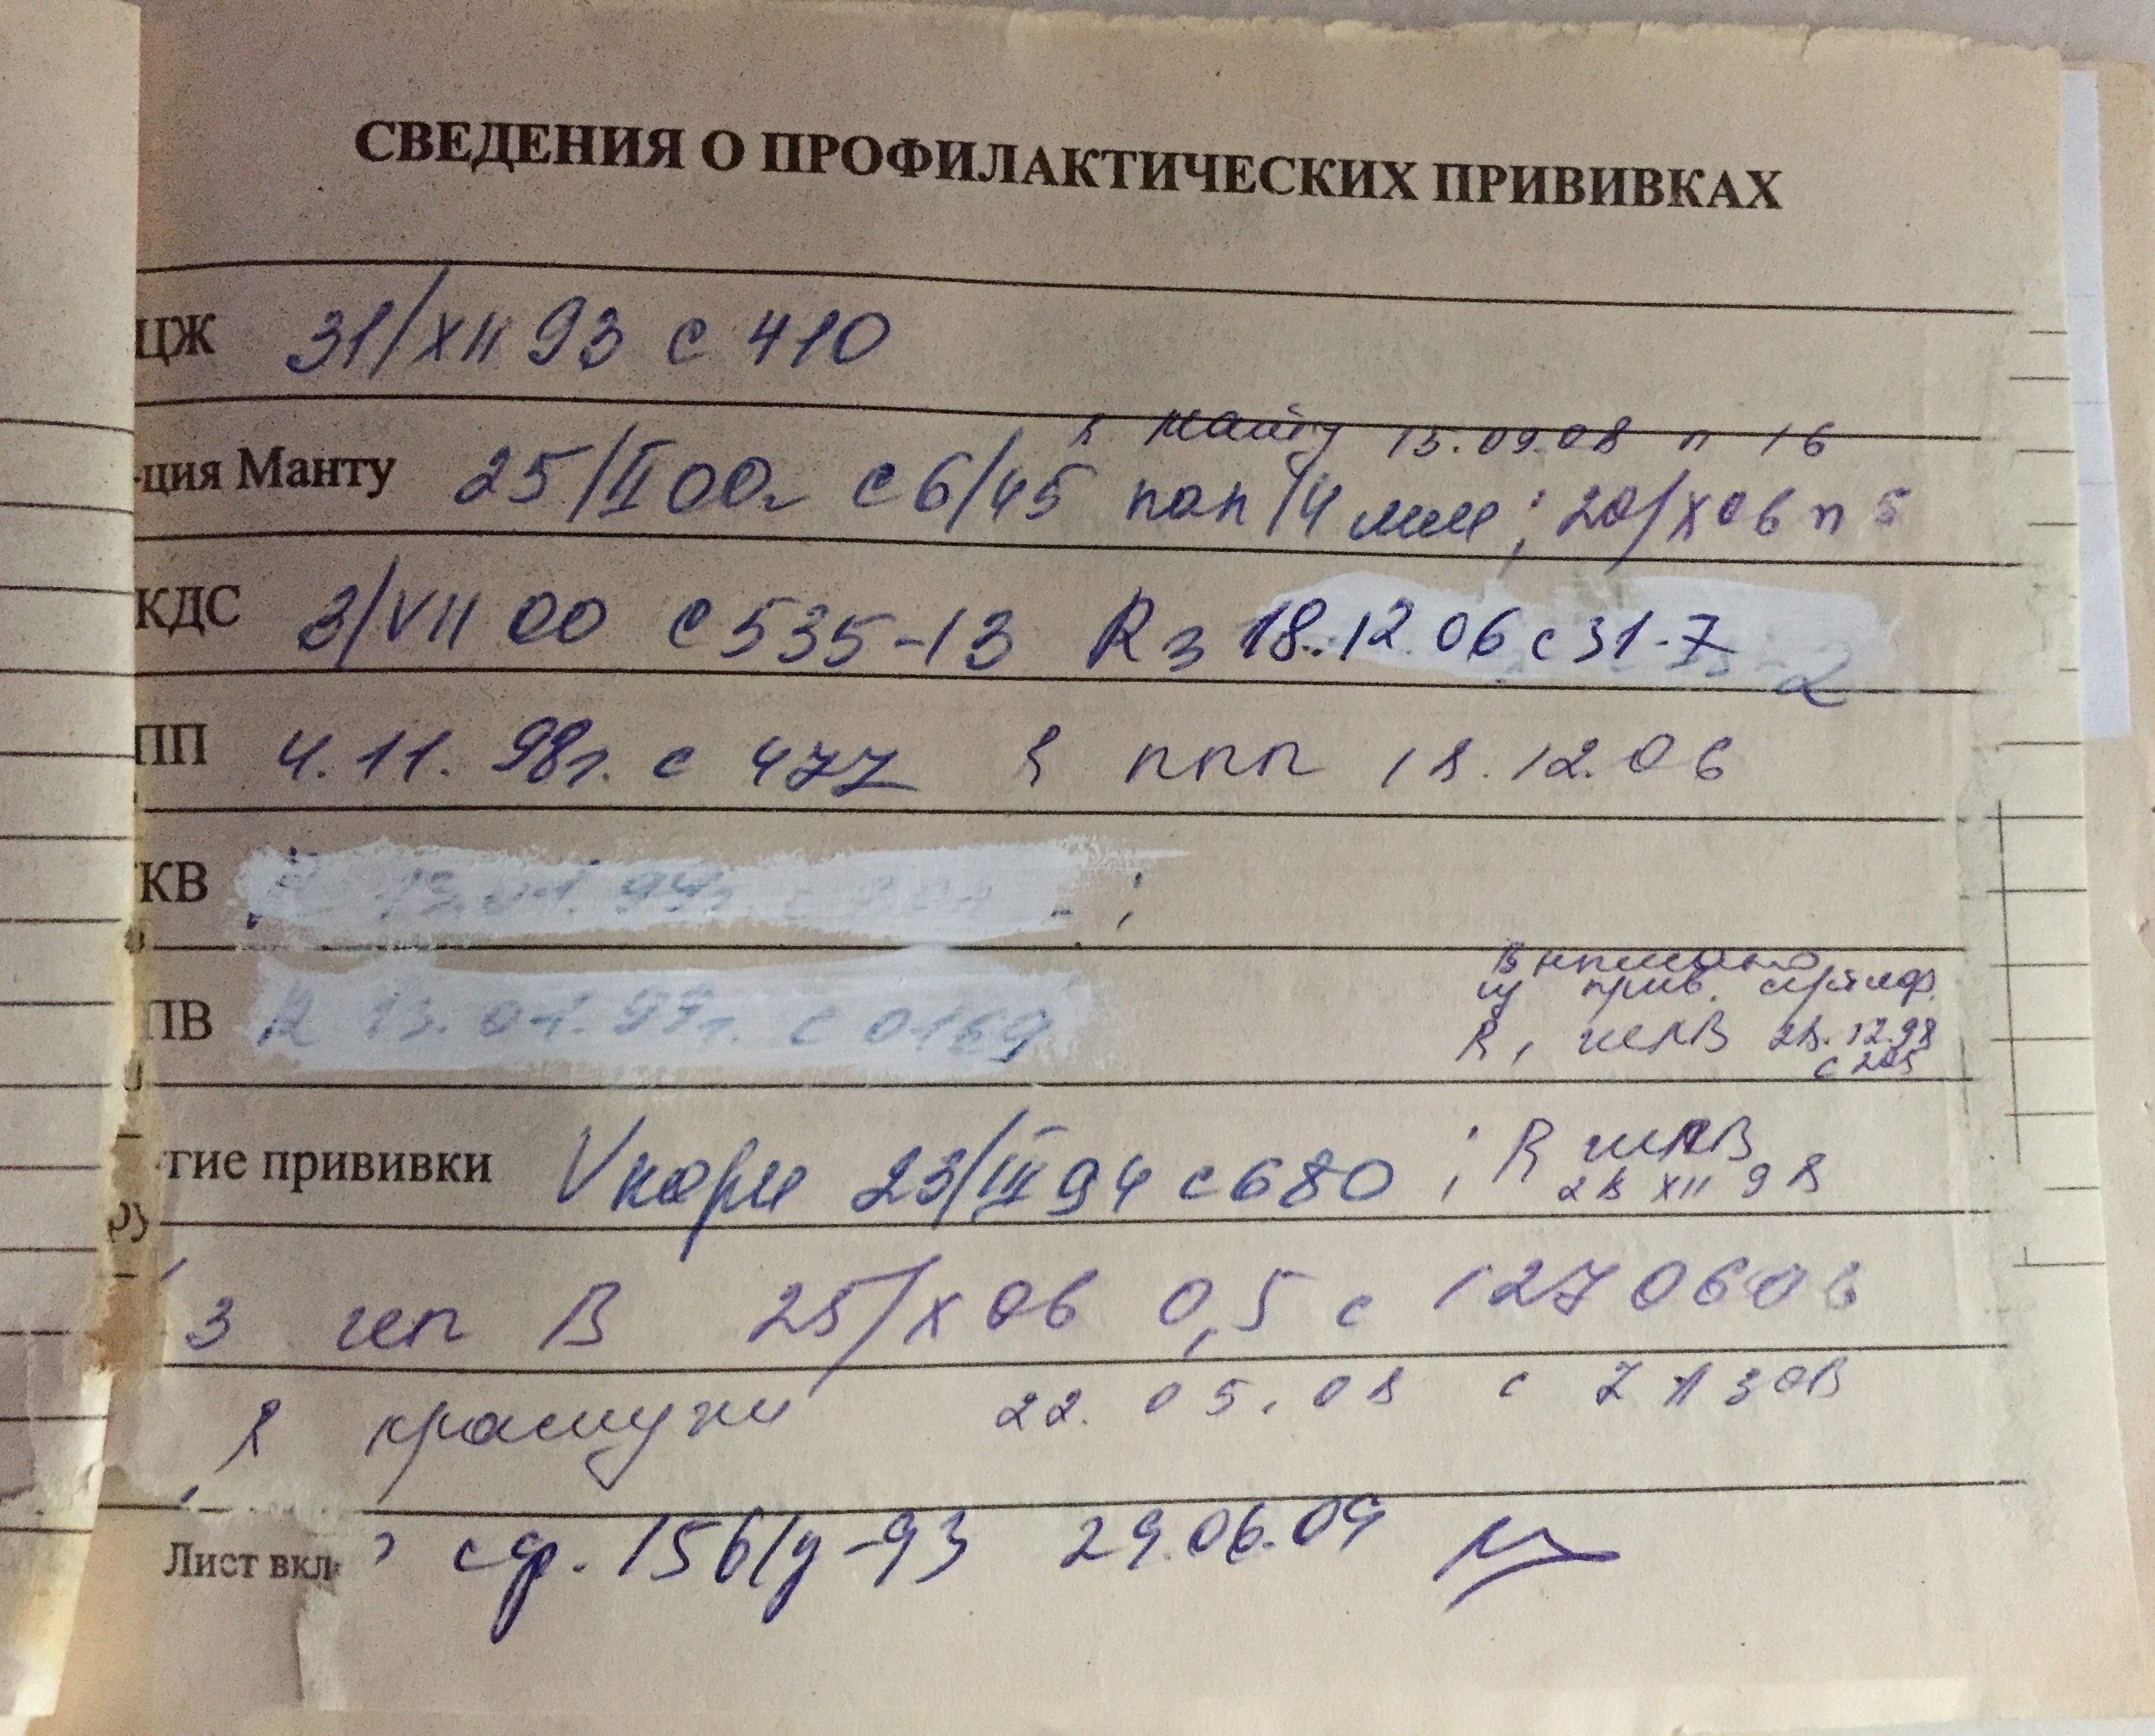 СВЕДЕНИЯ О ПРОФИЛАКТИЧЕСКИХ ПРИВИВКАХ
ЦЖ 31/XII 93 с 410
R Манту 15.09.08 п 16
ция Манту 25/II 00г с 6/45 пап/4 мм ; 20/X 06 п 5
КДС 3/VII 00 с 535-13 R3 18.12.06 с 31-7
ПП 4.11.98г. с 477 R ППП 18.12.06
КВ
В
прив.
ПВ R 13.01.99г. с 0169 R, ЖПВ 28.12.98
с 205
гие прививки V кори 23/III 94 с 680 ; R ЖПВ
28 XII 98
3 геп В 25/X 06 0,5 с 1270606
R краснухи 22.05.08
Лист вкл ср. 156/у-93 29.06.09